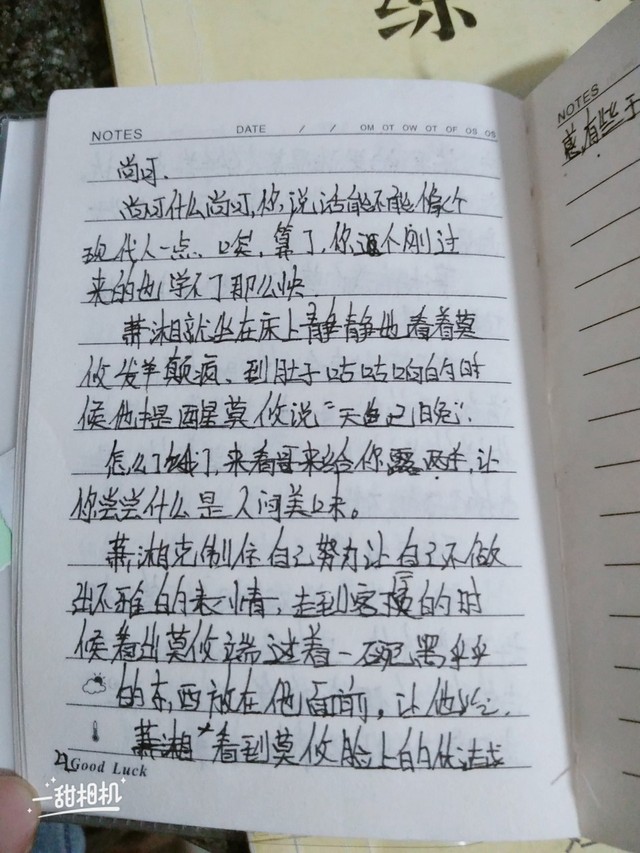 练
NOTES DATE / / OM OT OW OT OF OS OS
NOTES
尚可.
尚可什么尚可,你说话能不能像个
现代人一点、唉,算了,你这个刚过
来的也学不了那么快
萧湘就坐在床上静静地看着莫
攸发羊颠疯、到肚子咕咕响的时
候他提醒莫攸说"天色已晚".
怎么了饿了,来看哥来给你露两手,让
你尝尝什么是人间美味。
萧湘克制住自己努力让自己不做
出不雅的表情,走到客the时
候看出莫攸端过着一碗黑乎乎
的东西放在他面前,让他吃.
萧湘看到莫攸脸上的
Good Luck
一甜相机